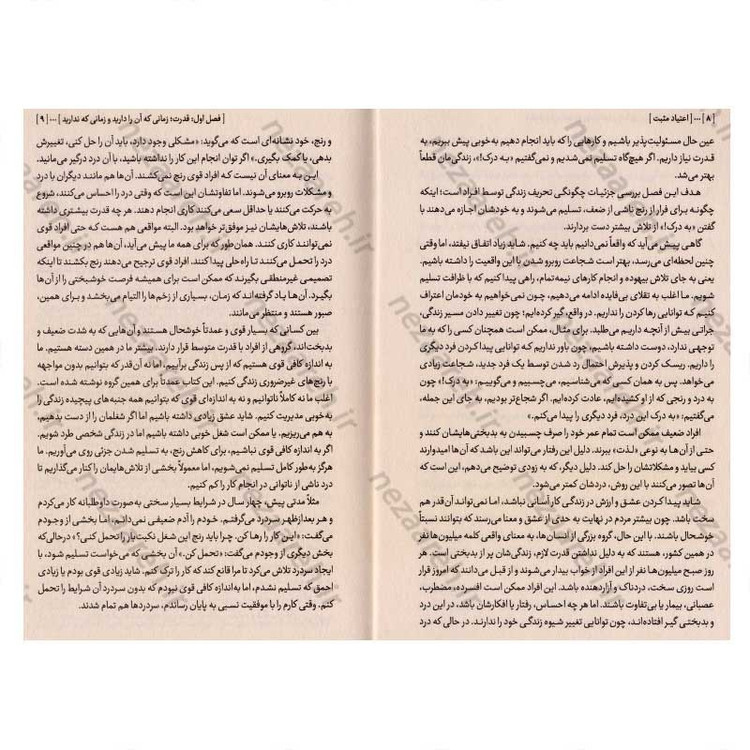 [ ۸ ] ... [ اعتیاد مثبت ]
عین حال مسئولیت‌پذیر باشیم و کارهایی را که باید انجام دهیم به‌خوبی پیش ببریم، به
قدرت نیاز داریم. اگر هیچ‌گاه تسلیم نمی‌شدیم و نمی‌گفتیم «به درک!»، زندگی‌مان قطعاً
بهتر می‌شد.
هدف این فصل بررسی جزئیات چگونگی تحریف زندگی توسط افراد است؛ اینکه
چگونه برای فرار از رنج ناشی از ضعف، تسلیم می‌شوند و به خودشان اجازه می‌دهند با
گفتن «به درک!» از تلاش بیشتر دست بردارند.
گاهی پیش می‌آید که واقعاً نمی‌دانیم باید چه کنیم. شاید زیاد اتفاق نیفتد، اما وقتی
چنین لحظه‌ای می‌رسد، بهتر است شجاعت روبرو شدن با این واقعیت را داشته باشیم.
یعنی به جای تلاش بیهوده و انجام کارهای نیمه‌تمام، راهی پیدا کنیم که با ظرافت تسلیم
شویم. ما اغلب به تقلای بی‌فایده ادامه می‌دهیم، چون نمی‌خواهیم به خودمان اعتراف
کنیم که توانایی رها کردن را نداریم. در واقع، گیر کرده‌ایم؛ چون تغییر دادن مسیر زندگی،
جراتی بیش از آنچه داریم می‌طلبد. برای مثال، ممکن است همچنان کسی را که به ما
توجهی ندارد، دوست داشته باشیم، چون باور نداریم که توانایی پیدا کردن فرد دیگری
را داریم. ریسک کردن و پذیرش احتمال رد شدن توسط یک فرد جدید، شجاعت زیادی
می‌خواهد. پس به همان کسی که می‌شناسیم، می‌چسبیم و می‌گوییم: «به درک!» چون
به درد و رنجی که از او کشیده‌ایم، عادت کرده‌ایم. اگر شجاع‌تر بودیم، به جای این جمله،
می‌گفتیم: «به درک این درد، فرد دیگری را پیدا می‌کنم.»
افراد ضعیف ممکن است تمام عمر خود را صرف چسبیدن به بدبختی‌هایشان کنند و
حتی از آن‌ها به نوعی «لذت» ببرند. دلیل این رفتار می‌تواند این باشد که آن‌ها امیدوارند
کسی بیاید و مشکلاتشان را حل کند. دلیل دیگر، که به زودی توضیح می‌دهم، این است که
آن‌ها تصور می‌کنند با این روش، دردشان کمتر می‌شود.
شاید پیدا کردن عشق و ارزش در زندگی کار آسانی نباشد، اما نمی‌تواند آن‌قدر هم
سخت باشد، چون بیشتر مردم در نهایت به حدی از عشق و معنا می‌رسند که بتوانند نسبتاً
خوشحال باشند. با این حال، گروه بزرگی از انسان‌ها، به معنای واقعی کلمه میلیون‌ها نفر
در همین کشور، هستند که به دلیل نداشتن قدرت لازم، زندگی‌شان پر از بدبختی است. هر
روز صبح میلیون‌ها نفر از این افراد از خواب بیدار می‌شوند و از قبل می‌دانند که امروز قرار
است روزی سخت، دردناک و آزاردهنده باشد. این افراد ممکن است افسرده، مضطرب،
عصبانی، بیمار یا بی‌تفاوت باشند. اما هر چه احساس، رفتار یا افکارشان باشد، در این درد
و بدبختی گیر افتاده‌اند، چون توانایی تغییر شیوه زندگی خود را ندارند. در حالی که درد
[ فصل اول: قدرت؛ زمانی که آن را دارید و زمانی که ندارید ] ... [ ۹ ]
و رنج، خود نشانه‌ای است که می‌گوید: «مشکلی وجود دارد، باید آن را حل کنی، تغییرش
بدهی، یا کمک بگیری.» اگر توان انجام این کار را نداشته باشید، با آن درد درگیر می‌مانید.
این به معنای آن نیست که افراد قوی رنج نمی‌کشند. آن‌ها هم مانند دیگران با درد
و مشکلات روبرو می‌شوند. اما تفاوتشان این است که وقتی درد را احساس می‌کنند، شروع
به حرکت می‌کنند یا حداقل سعی می‌کنند کاری انجام دهند. هر چه قدرت بیشتری داشته
باشند، تلاش‌هایشان نیز موفق‌تر خواهد بود. البته مواقعی هم هست که حتی افراد قوی
نمی‌توانند کاری کنند. همان‌طور که برای همه ما پیش می‌آید، آن‌ها هم در چنین مواقعی
درد را تحمل می‌کنند تا راه حلی پیدا کنند. افراد قوی ترجیح می‌دهند رنج بکشند تا اینکه
تصمیمی غیرمنطقی بگیرند که ممکن است برای همیشه فرصت خوشبختی را از آن‌ها
بگیرد. آن‌ها یاد گرفته‌اند که زمان، بسیاری از زخم‌ها را التیام می‌بخشد و برای همین،
صبور هستند و منتظر می‌مانند.
بین کسانی که بسیار قوی و عمدتاً خوشحال هستند و آن‌هایی که به شدت ضعیف و
بدبخت‌اند، گروهی از افراد با قدرت متوسط قرار دارند. بیشتر ما در همین دسته هستیم. ما
به اندازه کافی قوی هستیم که از پس زندگی برآییم، اما نه آن‌قدر که بتوانیم بدون مواجهه
با رنج‌های غیرضروری زندگی کنیم. این کتاب عمدتاً برای همین گروه نوشته شده است.
اغلب ما نه کاملاً ناتوانیم و نه به‌اندازه‌ای قوی که بتوانیم همه جنبه‌های پیچیده زندگی را
به‌خوبی مدیریت کنیم. شاید عشق زیادی داشته باشیم اما اگر شغلمان را از دست بدهیم،
به هم می‌ریزیم. یا ممکن است شغل خوبی داشته باشیم اما در زندگی شخصی طرد شویم.
اگر به اندازه کافی قوی نباشیم، برای کاهش رنج، به تسلیم شدن جزئی روی می‌آوریم. ما
هرگز به‌طور کامل تسلیم نمی‌شویم، اما معمولاً بخشی از تلاش‌هایمان را کنار می‌گذاریم تا
درد ناشی از ناتوانی در انجام کار را کم کنیم.
مثلاً مدتی پیش، چهار سال در شرایط بسیار سختی به‌صورت داوطلبانه کار می‌کردم
و هر بعدازظهر سردرد می‌گرفتم. خودم را آدم ضعیفی نمی‌دانم، اما بخشی از وجودم
می‌گفت: «این کار را رها کن. چرا باید رنج این شغل نکبت‌بار را تحمل کنی؟» درحالی‌که
بخش دیگری از وجودم می‌گفت: «تحمل کن.» آن بخشی که می‌خواست تسلیم شود، با
ایجاد سردرد تلاش می‌کرد تا مرا قانع کند که کار را ترک کنم. شاید زیادی قوی بودم یا زیادی
احمق که تسلیم نشدم، اما به‌اندازه کافی قوی نبودم که بدون سردرد آن شرایط را تحمل
کنم. وقتی کارم را با موفقیت نسبی به پایان رساندم، سردردها هم تمام شدند.